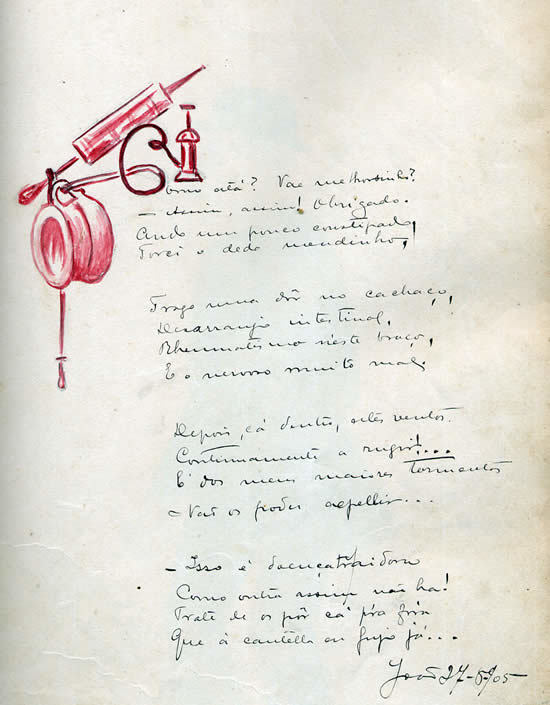 Como está? Vae melhorsinho?
— Assim, assim! Obrigado.
Ando um pouco constipado,
Torci o dedo mendinho,
Trago uma dôr no cachaço,
Desarranjo intestinal,
Rheumatismo n'este braço,
E o nervoso muito mal.
Depois, cá dentro, estes ventos
Continuamente a rugir!...
É dos meus maiores tormentos
— Não os poder expellir...
— Isso é doença traidora
Como outra assim não ha!
Trate de os pôr cá p'ra fóra
Que à cautella eu fujo já...
27-5-905